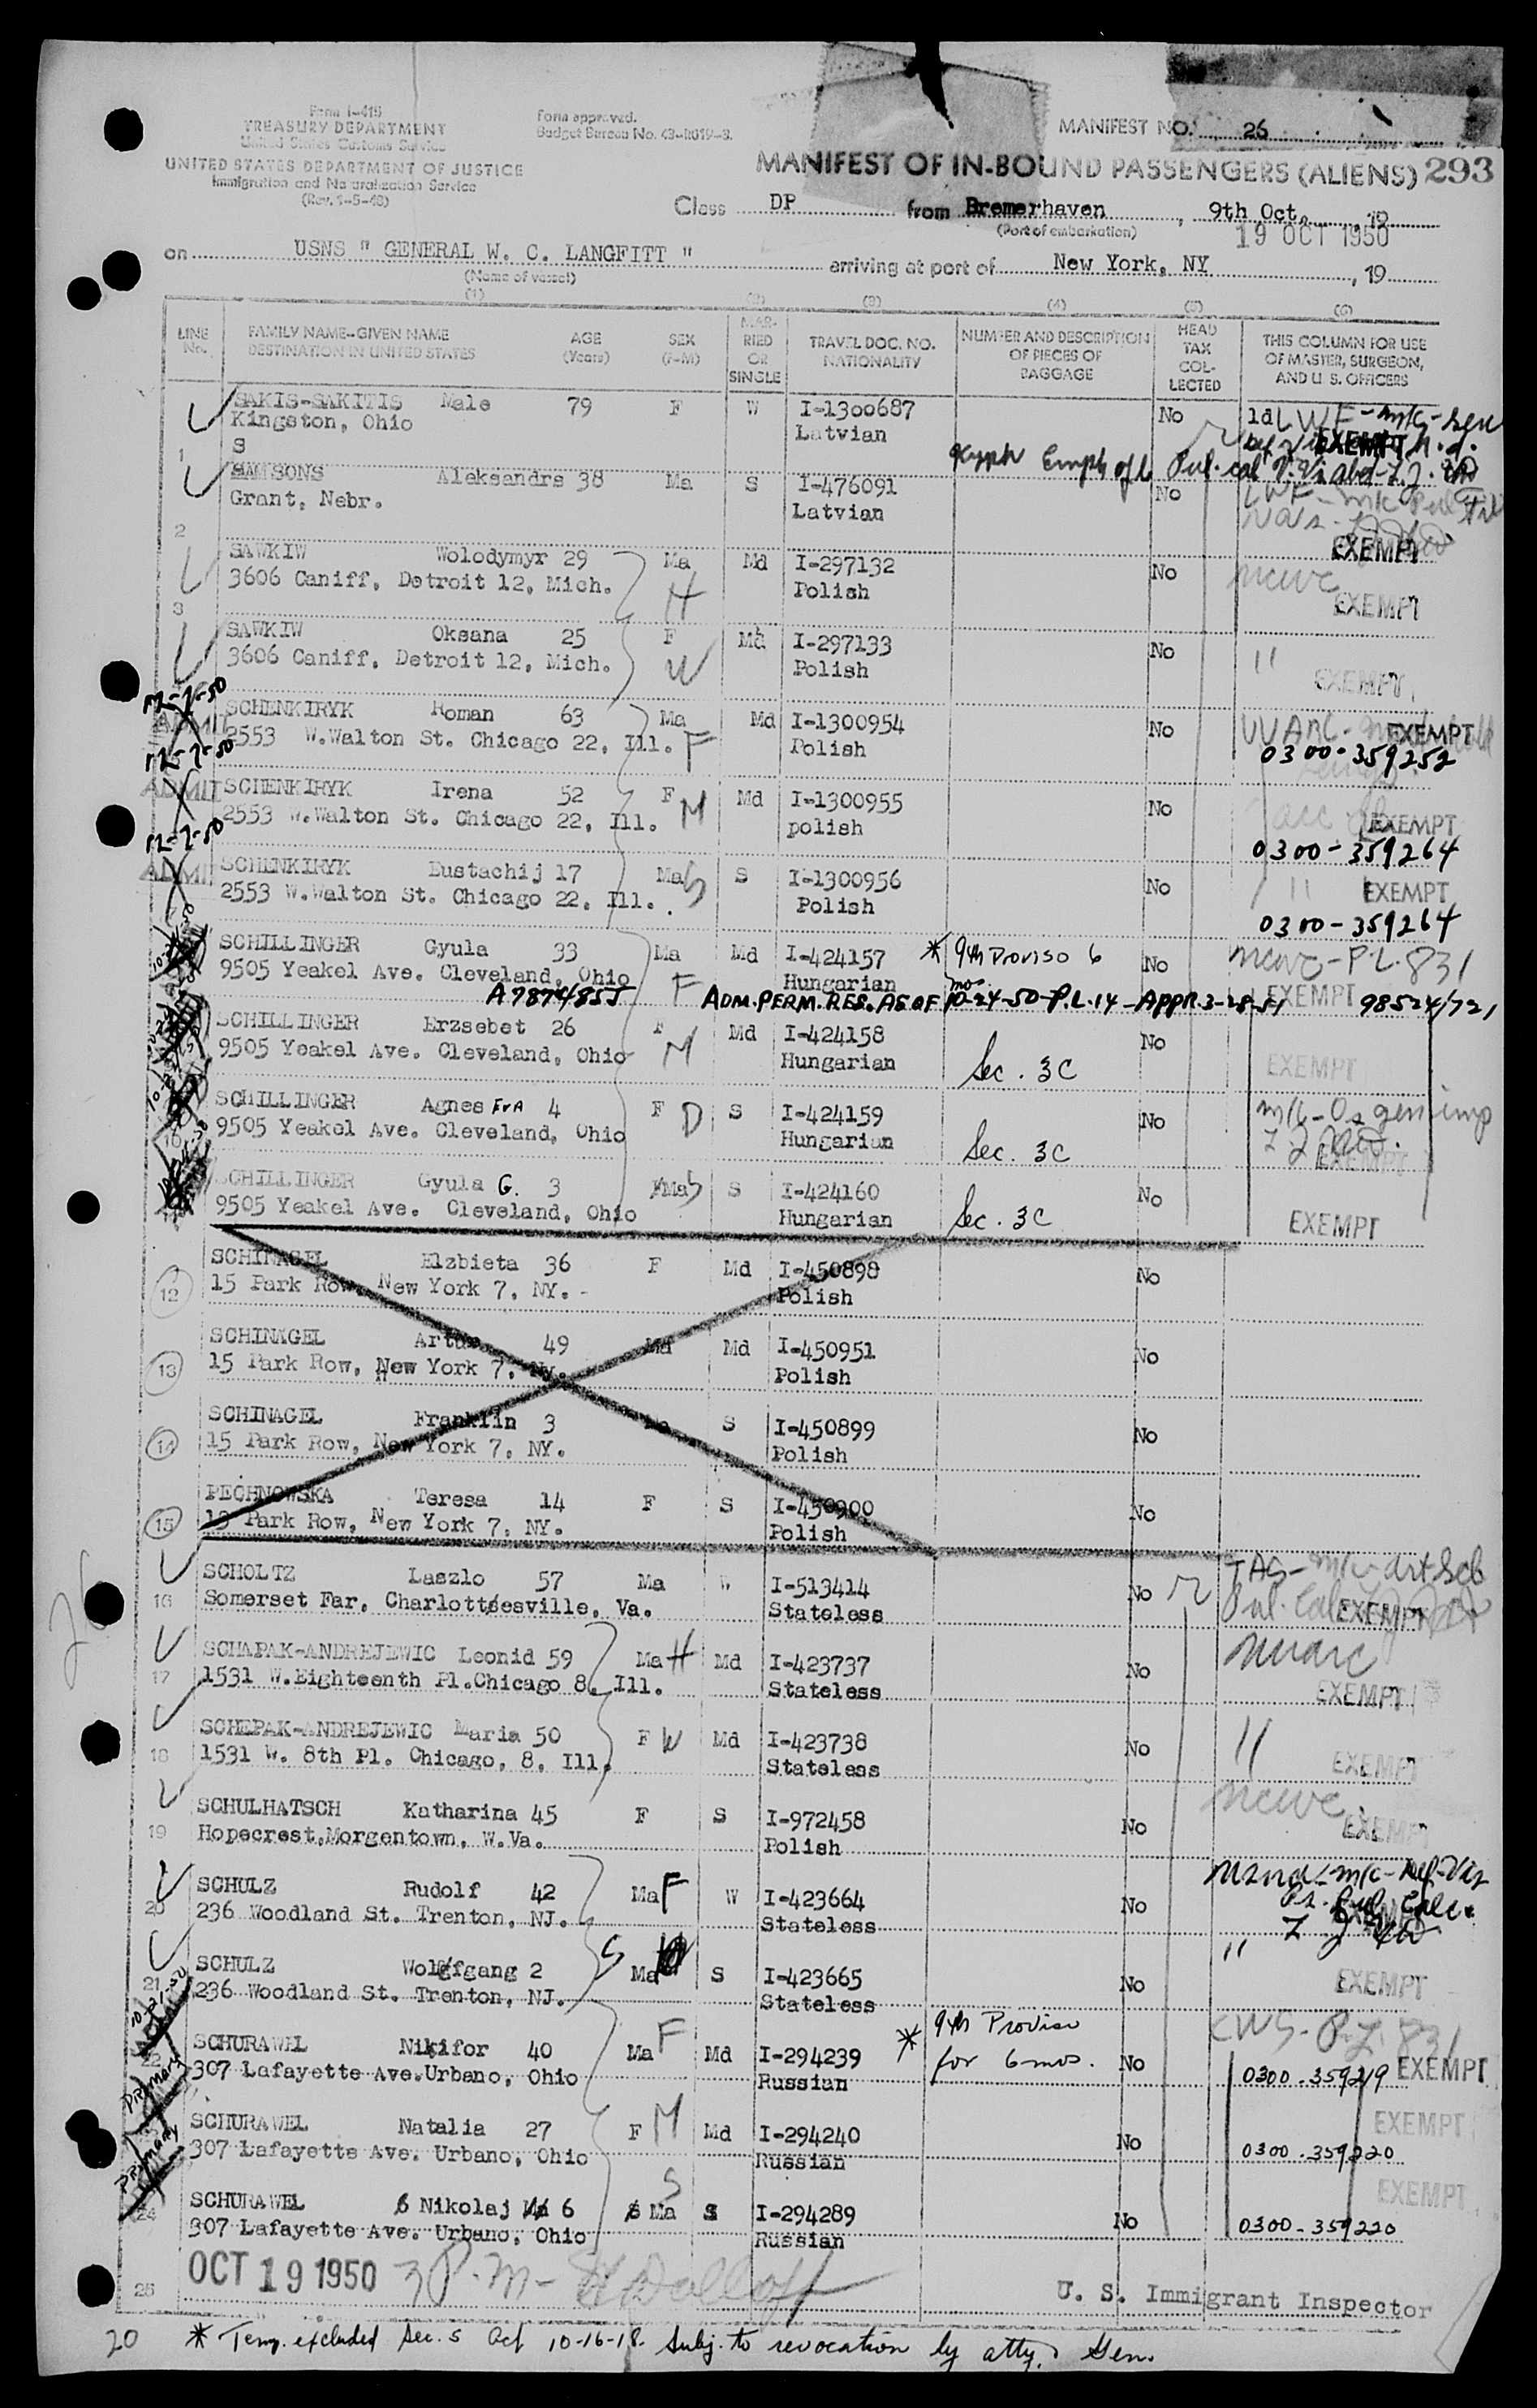 Form I-415
TREASURY DEPARTMENT
United States Customs Service
UNITED STATES DEPARTMENT OF JUSTICE
Immigration and Naturalization Service
(Rev. 1-5-48)
Form approved.
Budget Bureau No. 43-R019-3.
MANIFEST NO. 26
MANIFEST OF IN-BOUND PASSENGERS (ALIENS) 293
Class DP from Bremerhaven, 9th Oct, 19
(Port of embarkation) 19 OCT 1950
on USNS " GENERAL W. C. LANGFITT " arriving at port of New York, NY, 19
(Name of vessel)
(1) (2) (3) (4) (5) (6)
LINE No. FAMILY NAME-GIVEN NAME DESTINATION IN UNITED STATES AGE (Years) SEX (F-M) MARRIED OR SINGLE TRAVEL DOC. NO. NATIONALITY NUMBER AND DESCRIPTION OF PIECES OF BAGGAGE HEAD TAX COLLECTED THIS COLUMN FOR USE OF MASTER, SURGEON, AND U. S. OFFICERS
SAKIS-SAKITIS Male 79 F W I-1300687 No LWF - EXEMPT
Kingston, Ohio Latvian
1 S
SAMSONS Aleksandrs 38 Ma S I-476091 No
Grant, Nebr. Latvian
2 EXEMPT
SAWKIW Wolodymyr 29 Ma Md I-297132 No ncwc
3606 Caniff, Detroit 12, Mich. H Polish EXEMPT
3
SAWKIW Oksana 25 F Md I-297133 No "
3606 Caniff, Detroit 12, Mich. W Polish EXEMPT
12-7-50
SCHENKIRYK Roman 63 Ma Md I-1300954 No EXEMPT
ADMIT 2553 W.Walton St. Chicago 22, Ill. F Polish 0300-359252
12-7-50
SCHENKIRYK Irena 52 F Md I-1300955 No
ADMIT 2553 W.Walton St. Chicago 22, Ill. M polish EXEMPT
0300-359264
12-7-50
SCHENKIRYK Eustachij 17 Ma S S I-1300956 No " EXEMPT
ADMIT 2553 W.Walton St. Chicago 22, Ill. Polish
0300-359264
SCHILLINGER Gyula 33 Ma Md I-424157 * 9th Proviso 6 mo No ncwc-P.L. 831
9505 Yeakel Ave. Cleveland, Ohio F Hungarian
A7874855 ADM. PERM. RES. AS OF 10-24-50-P.L.14-APPR.3-28-51 EXEMPT 98524/721
SCHILLINGER Erzsebet 26 F Md I-424158 No
9505 Yeakel Ave. Cleveland, Ohio M Hungarian Sec. 3C EXEMPT
SCHILLINGER Agnes EVA 4 F D S I-424159 No
10 9505 Yeakel Ave. Cleveland, Ohio Hungarian Sec. 3C EXEMPT
SCHILLINGER Gyula G. 3 Ma S S I-424160 No
9505 Yeakel Ave. Cleveland, Ohio Hungarian Sec. 3C EXEMPT
SCHINAGEL Elzbieta 36 F Md I-450898 No
12 15 Park Row, New York 7, NY. - Polish
SCHINAGEL Artur 49 Ma Md I-450951 No
13 15 Park Row, New York 7, NY. Polish
SCHINAGEL Franklin 3 Ma S I-450899 No
14 15 Park Row, New York 7, NY. Polish
PECHNOWSKA Teresa 14 F S I-450900 No
15 15 Park Row, New York 7, NY. Polish
SCHOLTZ Laszlo 57 Ma W I-513414 No
16 Somerset Far, Charlottesville, Va. Stateless EXEMPT
SCHAPAK-ANDREJEWIC Leonid 59 Ma H Md I-423737 No
17 1531 W.Eighteenth Pl.Chicago 8, Ill. Stateless EXEMPT
SCHEPAK-ANDREJEWIC Maria 50 F W Md I-423738 No "
18 1531 W. 8th Pl. Chicago, 8, Ill. Stateless EXEMPT
SCHULHATSCH Katharina 45 F S I-972458 No ncwc
19 Hopecrest,Morgentown, W.Va. Polish EXEMPT
SCHULZ Rudolf 42 Ma F W I-423664 No
20 236 Woodland St. Trenton, NJ. Stateless
SCHULZ Wolfgang 2 S Ma S I-423665 No "
21 236 Woodland St. Trenton, NJ. Stateless EXEMPT
SCHURAWEL Nikifor 40 Ma F Md I-294239 * 9th Proviso for 6 mos. No CWS-P.L. 831
22 307 Lafayette Ave.Urbano, Ohio Russian 0300-359219 EXEMPT
Primary
SCHURAWEL Natalia 27 F M Md I-294240 No EXEMPT
307 Lafayette Ave. Urbano, Ohio Russian 0300-359220
Primary
SCHURAWEL Nikolaj 6 Ma S S I-294289 No EXEMPT
24 307 Lafayette Ave. Urbano, Ohio Russian 0300-359220
OCT 19 1950 3 P.M-
25 U. S. Immigrant Inspector
26
20 * Temp. excluded Sec. 5 Act 10-16-18. Subj. to revocation by atty. Gen.